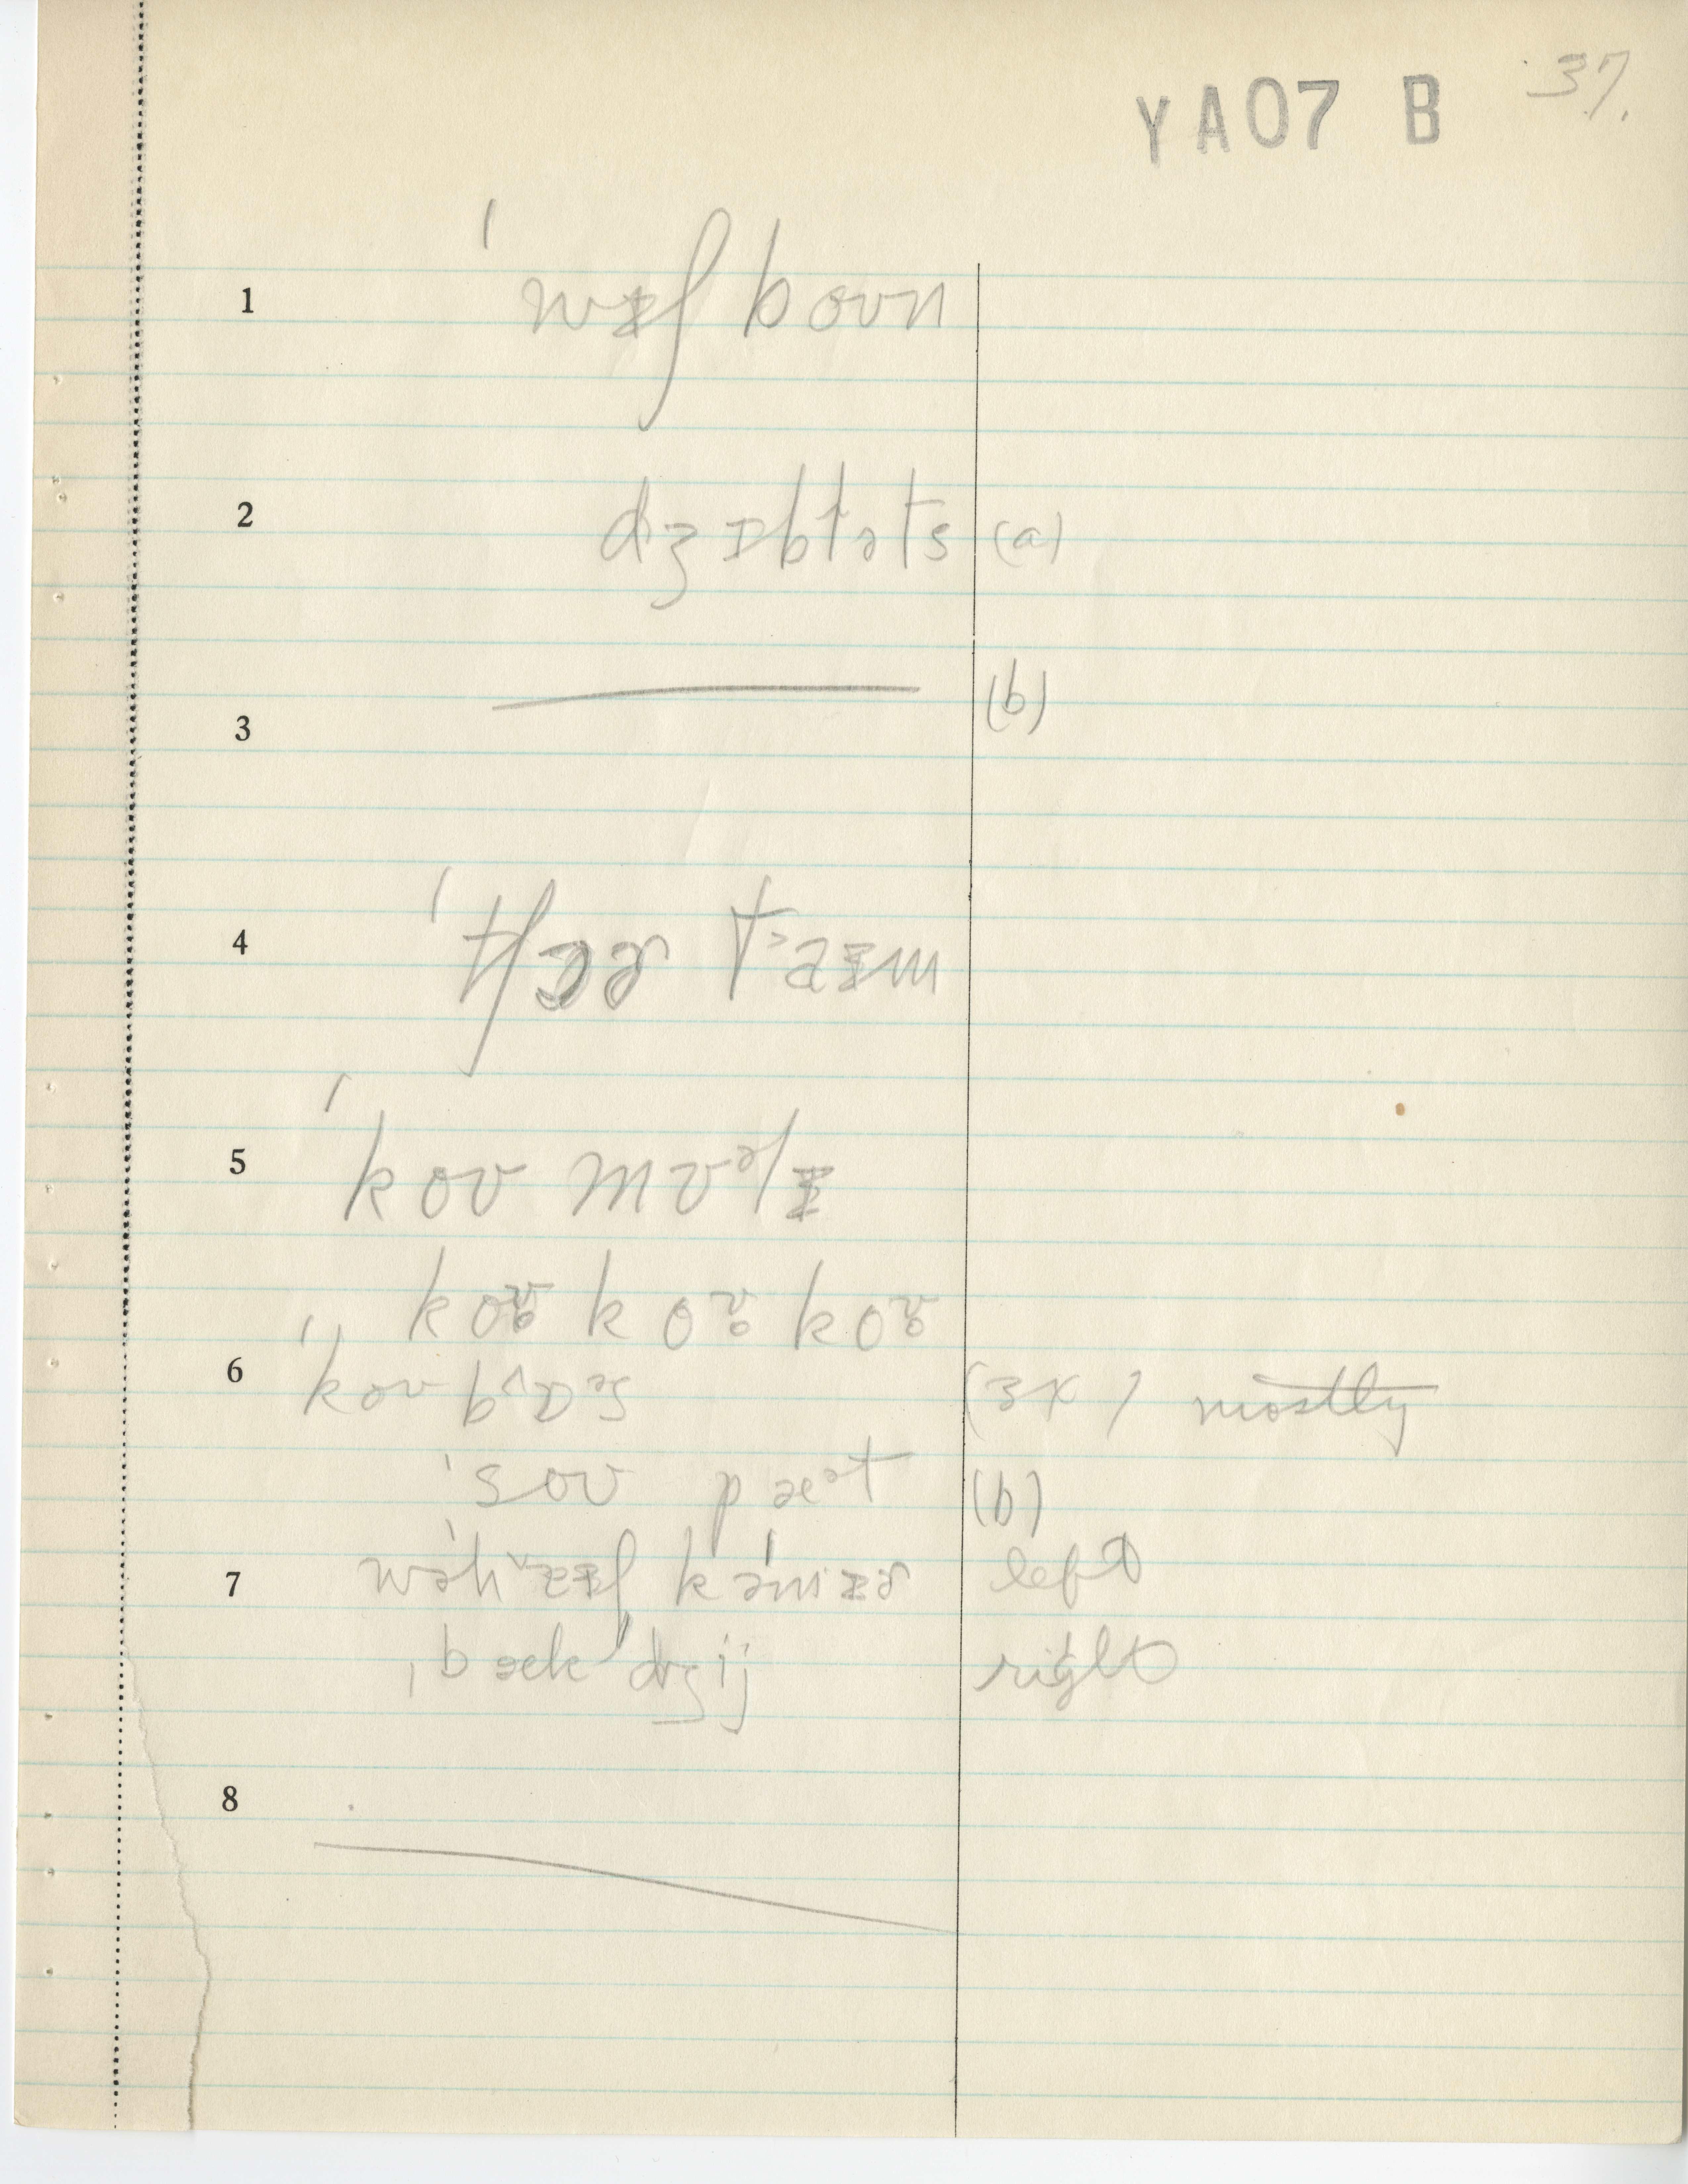 YA07 B 37.
1 ˈwɪʃ boʊn
2 dʒɪbləts (a)
3 (b)
4 ˈtʃɪɚ taɪm
5 ˈkoʊ mʊəlɪ
koʊ̥ koʊ̥ koʊ̥
6 ˈkoʊ bɒs (3x) mostly
ˈsoʊ pæət (b)
7 kəmɪɚ left
ˌbæk dʒij right
8